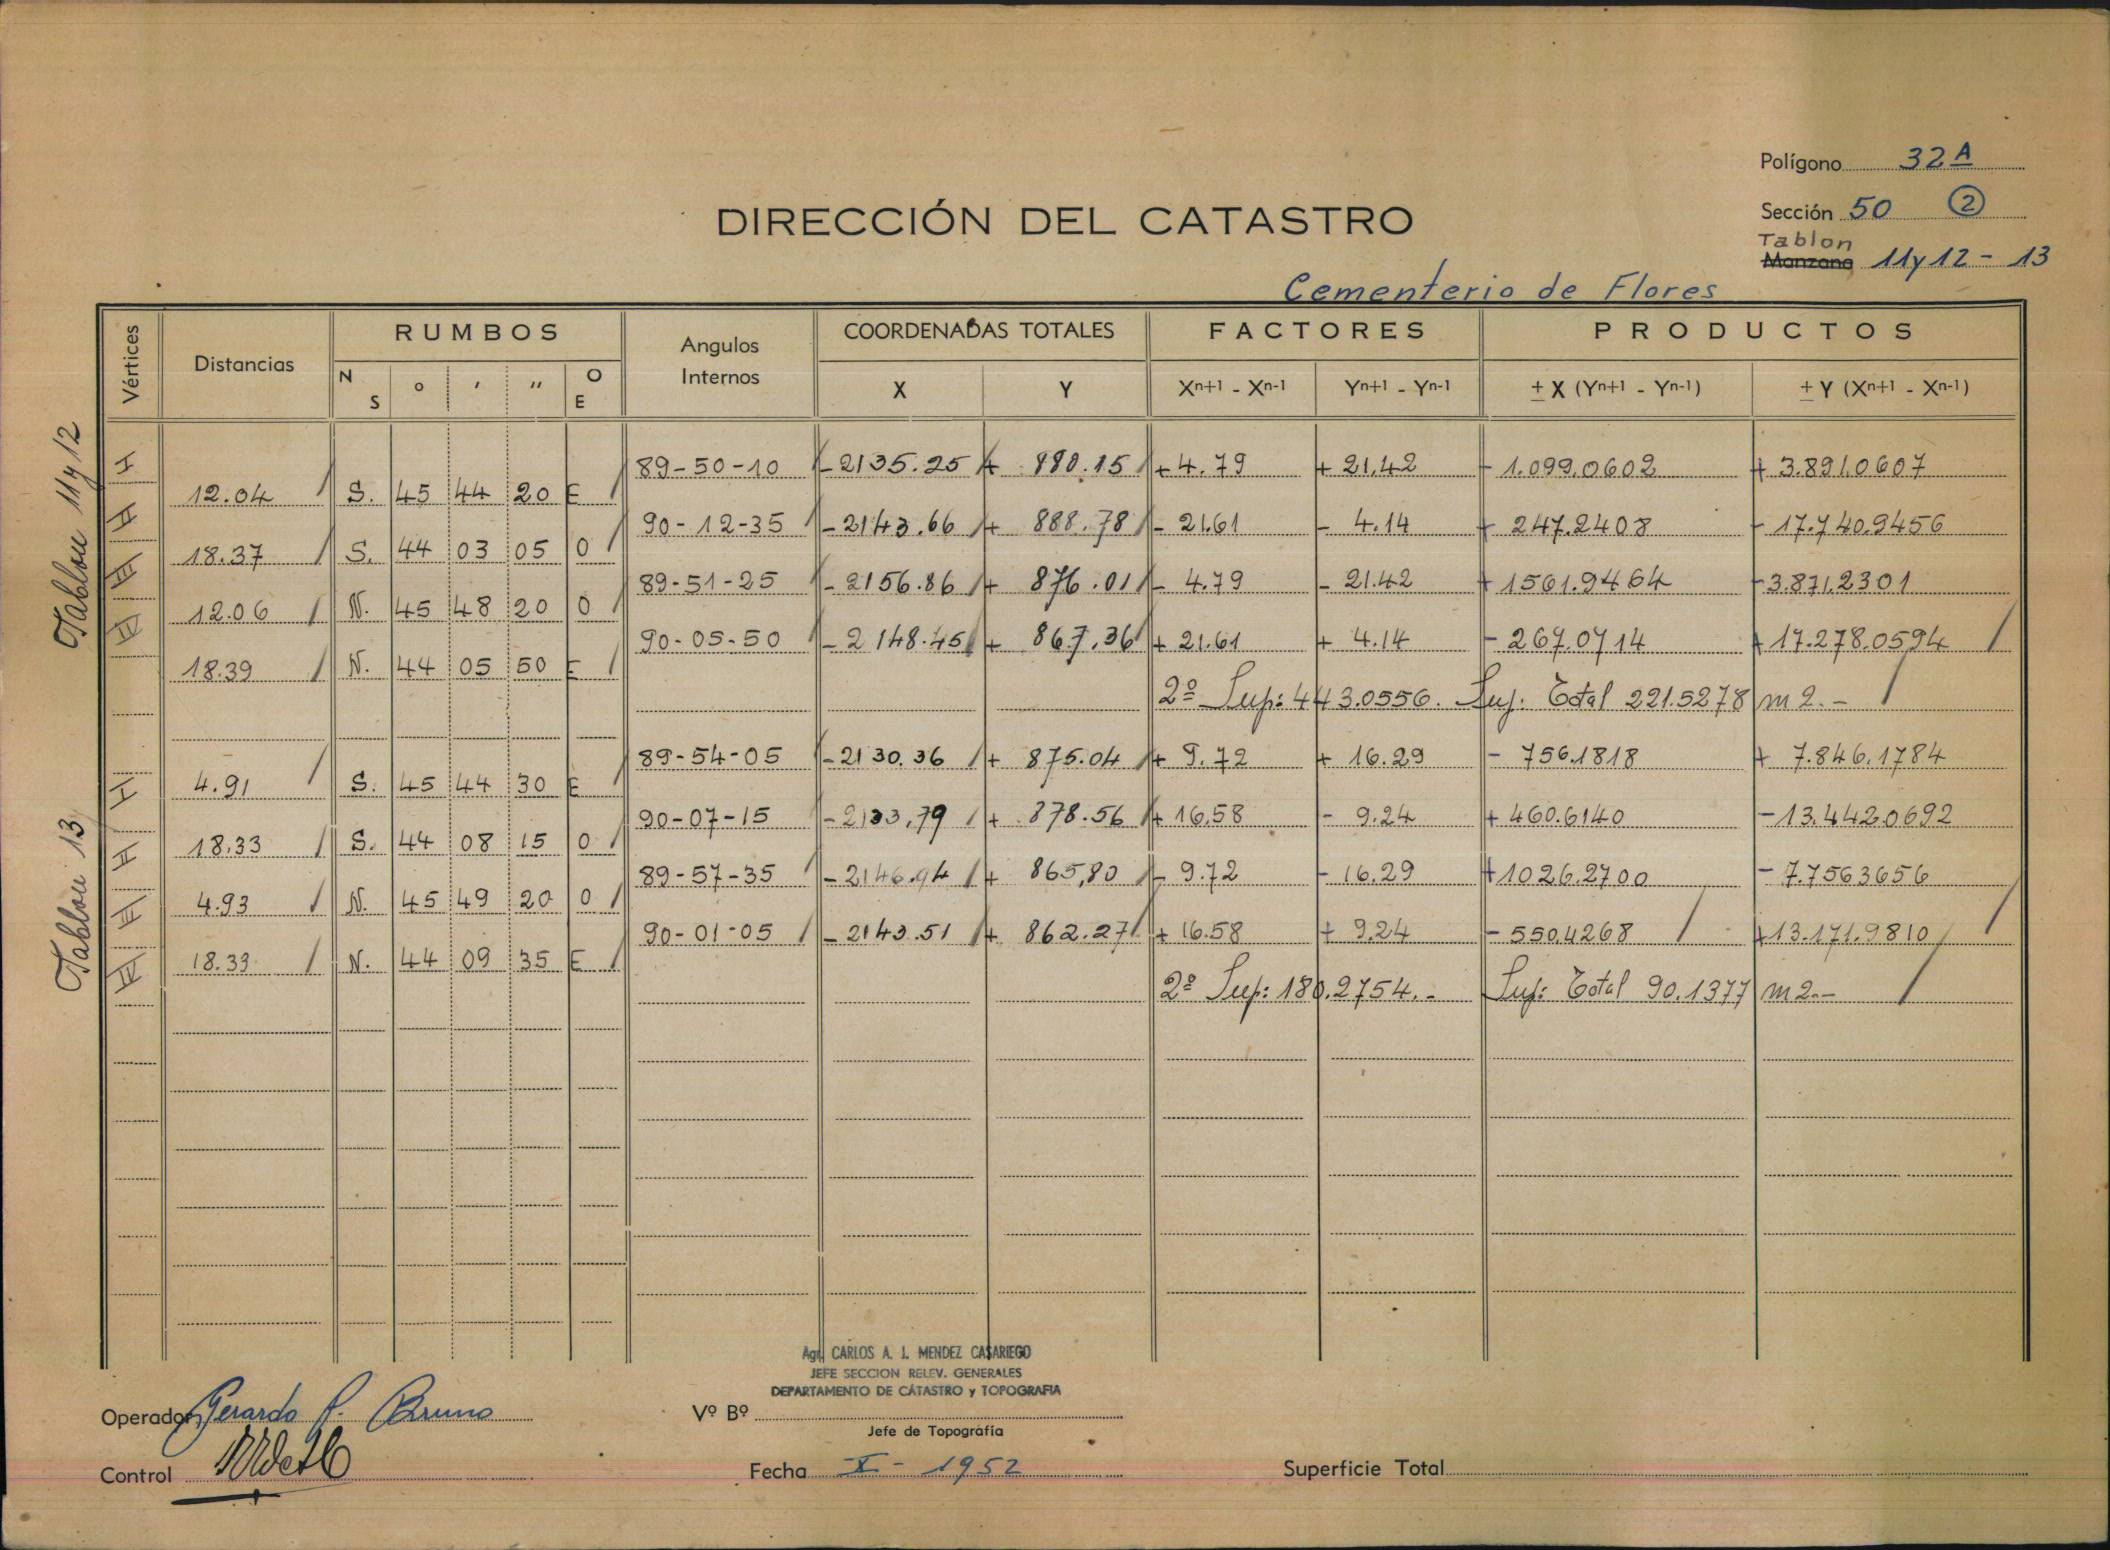 Polígono 32 A
DIRECCIÓN DEL CATASTRO
Sección 50 ②
Tablon
Manzana 11 y 12 - 13
Cementerio de Flores
Vértices Distancias RUMBOS Angulos Internos COORDENADAS TOTALES FACTORES PRODUCTOS
N S ° ' " O E X Y Xn+1 - Xn-1 Yn+1 - Yn-1 ± X (Yn+1 - Yn-1) ± Y (Xn+1 - Xn-1)
Tablon 11 y 12
I 89-50-10 -2135.25 + 880.15 +4.79 +21.42 - 1.099.0602 + 3.891.0607
12.04 S. 45 44 20 E
II 90-12-35 -2143.66 + 888.78 - 21.61 - 4.14 + 247.2408 - 17.740.9456
18.37 S. 44 03 05 O
III 89-51-25 -2156.86 + 876.01 - 4.79 - 21.42 + 1561.9464 -3.871.2301
12.06 N. 45 48 20 O
IV 90-05-50 -2148.45 + 867.36 + 21.61 + 4.14 - 267.0714 +17.278.0594
18.39 N. 44 05 50 E
2º Sup: 443.0556. Sup: Total 221.5278 m2.-
Tablon 13
I 89-54-05 -2130.36 + 875.04 + 9.72 + 16.29 - 756.1818 + 7.846.1784
4.91 S. 45 44 30 E
II 90-07-15 -2133,79 + 878.56 + 16.58 - 9.24 + 460.6140 -13.442.0692
18.33 S. 44 08 15 O
III 89-57-35 -2146.94 + 865,80 - 9.72 - 16.29 +1026.2700 - 7.756.3656
4.93 N. 45 49 20 O
IV 90-01-05 -2143.51 + 862.27 + 16.58 + 9.24 - 550.4268 +13.171.9810
18.33 N. 44 09 35 E
2º Sup: 180.2754.- Sup: Total 90.1377 m2.-
Agr. CARLOS A. J. MENDEZ CASARIEGO
JEFE SECCION RELEV. GENERALES
DEPARTAMENTO DE CATASTRO y TOPOGRAFIA
Operador Gerardo P. Bruno Vº Bº
Jefe de Topografía
Control Fecha X - 1952 Superficie Total